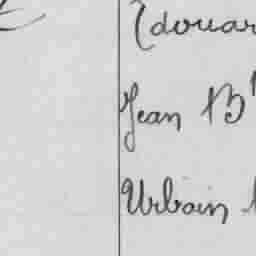 Edouar
Jean B
Urbain